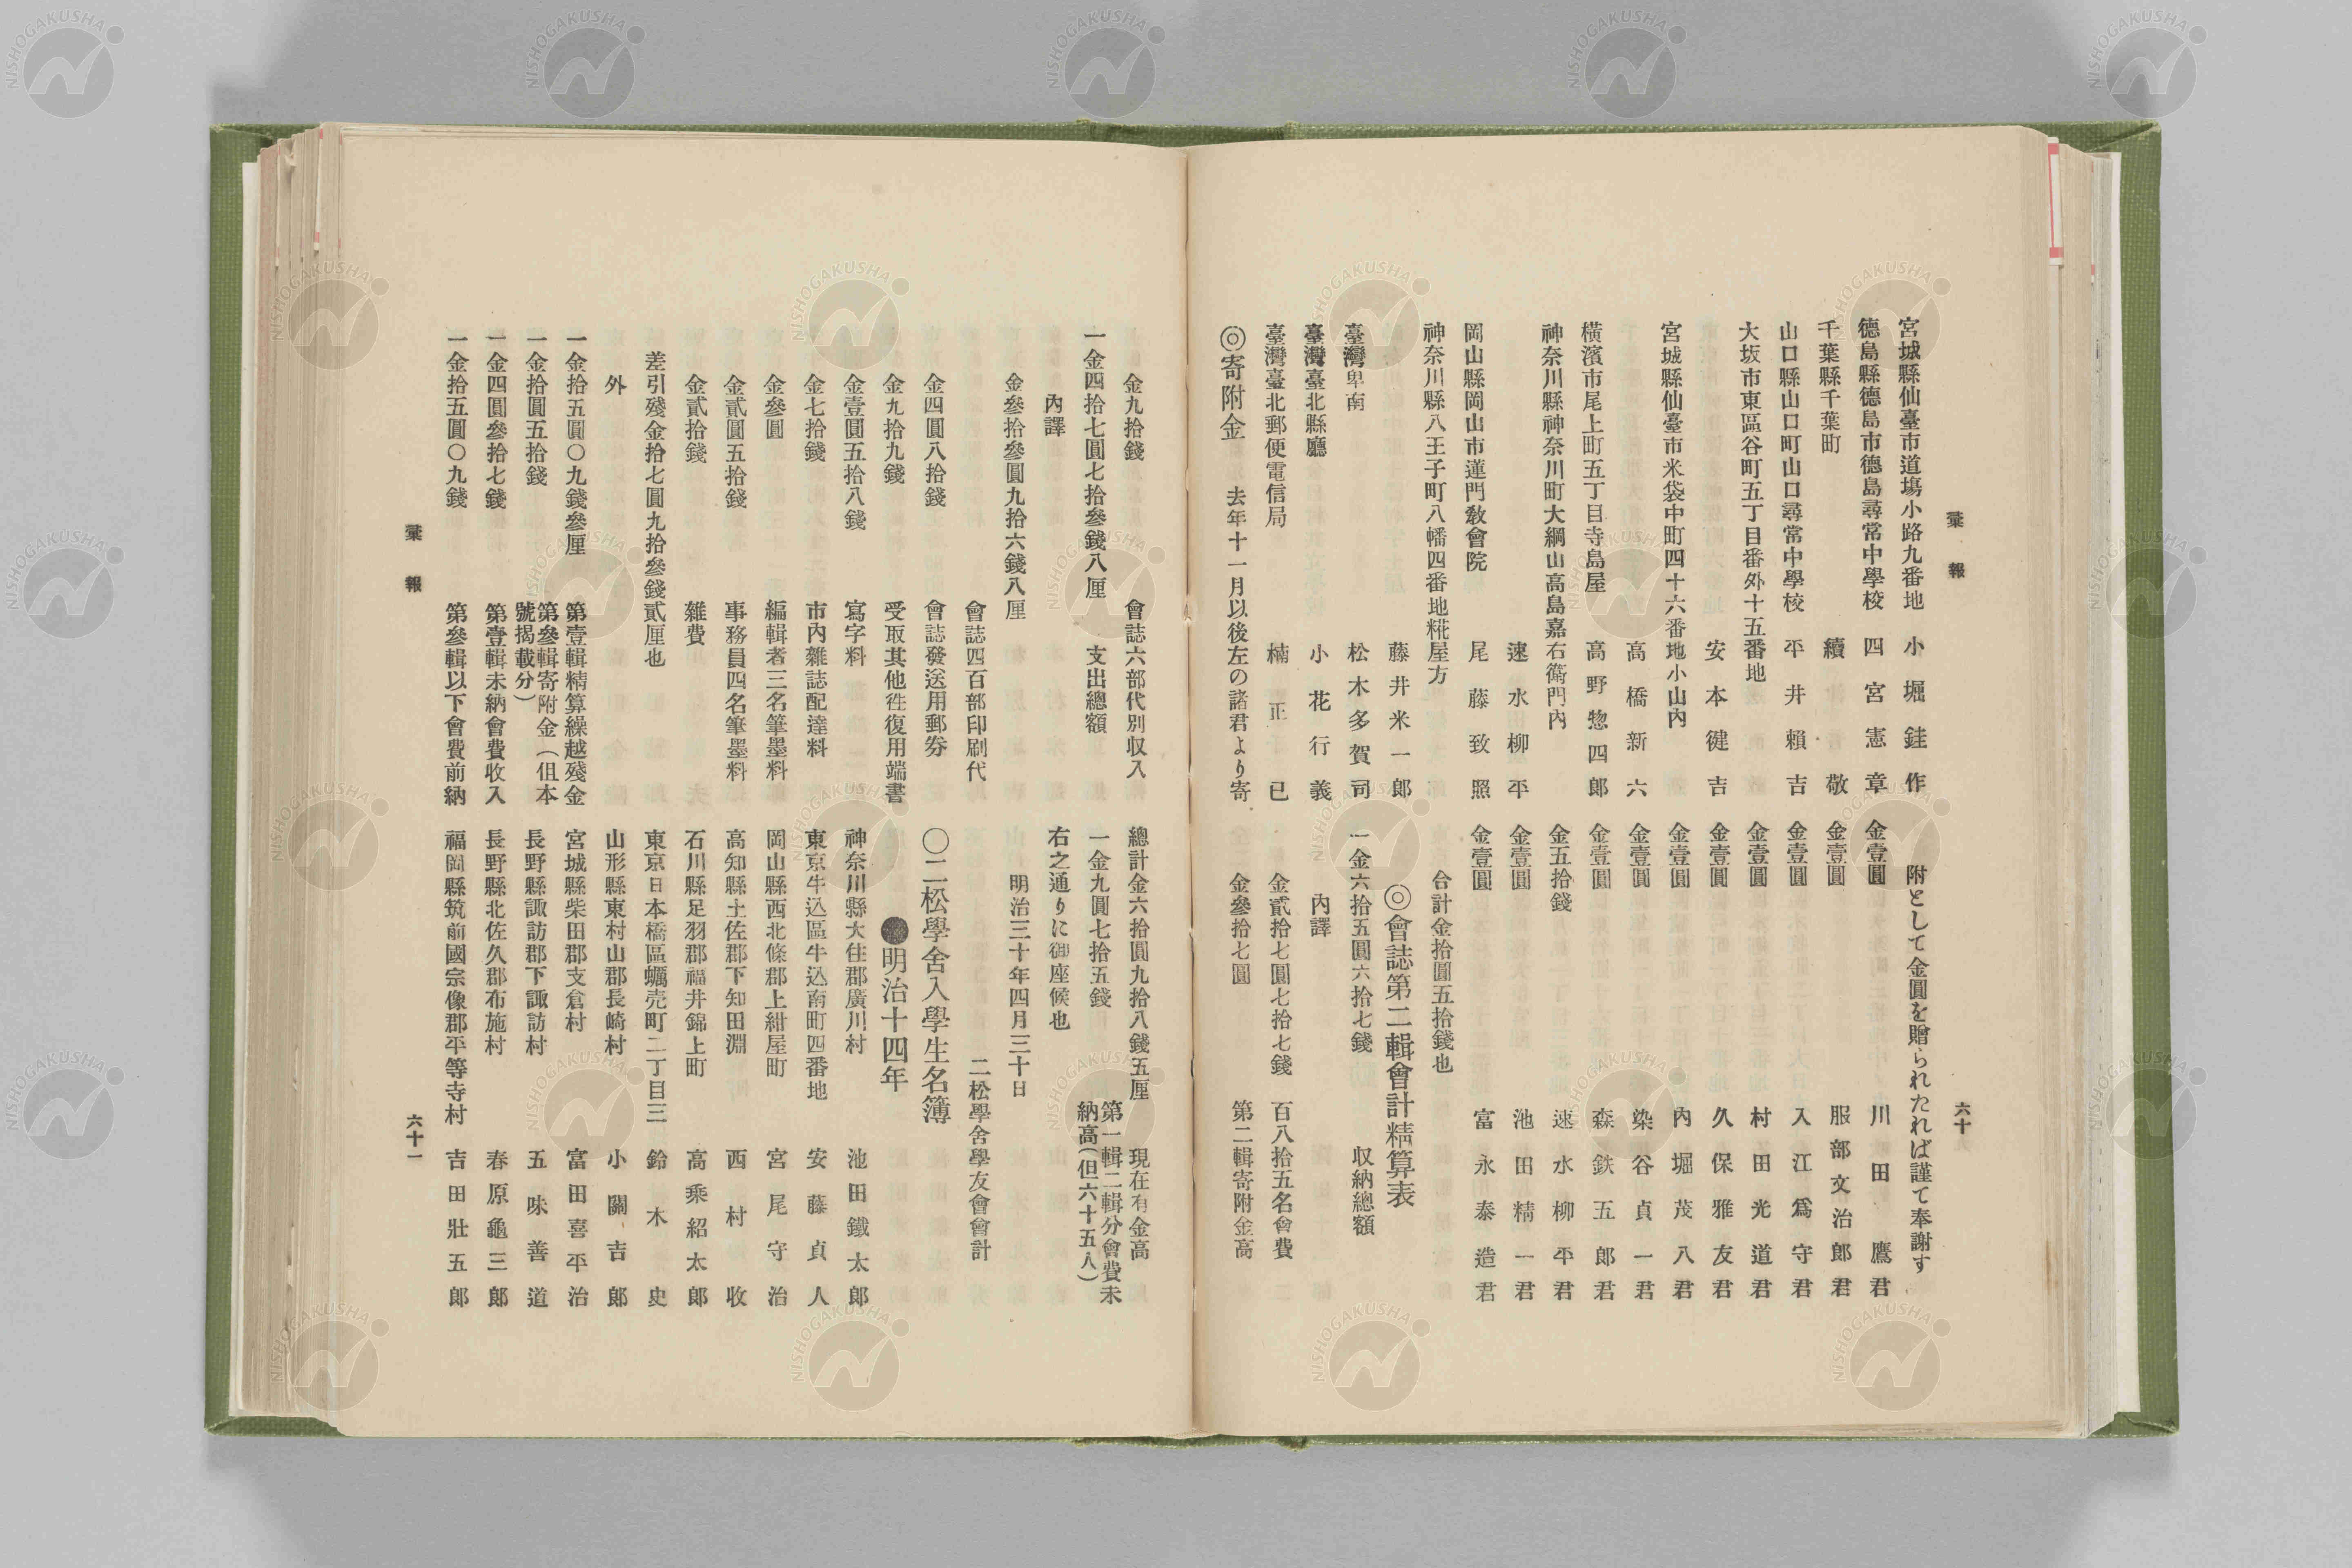 彙報
六十
宮城縣仙臺市道塲小路九番地 小堀銈作
德島縣德島市德島尋常中學校 四宮憲章
千葉縣千葉町 續敬
山口縣山口町山口尋常中學校 平井賴吉
大坂市東區谷町五丁目番外十五番地
安本健吉
宮城縣仙臺市米袋中町四十六番地小山内
高橋新六
橫濱市尾上町五丁目寺島屋 高野惣四郎
神奈川縣神奈川町大綱山高島嘉右衛門内
速水柳平
岡山縣岡山市蓮門敎會院 尾藤致照
神奈川縣八王子町八幡四番地糀屋方
藤井米一郎
臺灣卑南 松木多賀司
臺灣臺北縣廳 小花行義
臺灣臺北郵便電信局 楠正已
◎寄附金 去年十一月以後左の諸君より寄
附として金圓を贈られたれば謹て奉謝す
金壹圓 川田鷹君
金壹圓 服部文治郎君
金壹圓 入江爲守君
金壹圓 村田光道君
金壹圓 久保雅友君
金壹圓 内堀茂八君
金壹圓 染谷貞一君
金壹圓 森鉄五郎君
金五拾錢 速水柳平君
金壹圓 池田精一君
金壹圓 富永泰造君
合計金拾圓五拾錢也
◎會誌第二輯會計精算表
一金六拾五圓六拾七錢 収納總額
内譯
金貳拾七圓七拾七錢 百八拾五名會費
金參拾七圓 第二輯寄附金高
金九拾錢 會誌六部代別収入
一金四拾七圓七拾參錢八厘 支出總額
内譯
金參拾參圓九拾六錢八厘
會誌四百部印刷代
金四圓八拾錢 會誌發送用郵券
金九拾九錢 受取其他徃復用端書
金壹圓五拾八錢 寫字料
金七拾錢 市内雜誌配達料
金參圓 編輯者三名筆墨料
金貳圓五拾錢 事務員四名筆墨料
金貳拾錢 雜費
差引殘金拾七圓九拾參錢貳厘也
外
一金拾五圓〇九錢參厘 第壹輯精算繰越殘金
一金拾圓五拾錢 第參輯寄附金(伹本
號揭載分)
一金四圓參拾七錢 第壹輯未納會費收入
一金拾五圓〇九錢 第參輯以下會費前納
總計金六拾圓九拾八錢五厘 現在有金高
一金九圓七拾五錢 第一輯二輯分會費未
納高(但六十五人)
右之通りに御座候也
明治三十年四月三十日
二松學舍學友會會計
〇二松學舍入學生名簿
●明治十四年
神奈川縣大住郡廣川村 池田鐵太郎
東京牛込區牛込南町四番地 安藤貞人
岡山縣西北條郡上紺屋町 宮尾守治
高知縣土佐郡下知田淵 西村收
石川縣足羽郡福井錦上町 高乘紹太郎
東京日本橋區蠣売町二丁目三 鈴木史
山形縣東村山郡長崎村 小關吉郎
宮城縣柴田郡支倉村 富田喜平治
長野縣諏訪郡下諏訪村 五味善道
長野縣北佐久郡布施村 春原龜三郎
福岡縣筑前國宗像郡平等寺村 吉田壯五郎
彙報
六十一
NISHOGAKUSHA